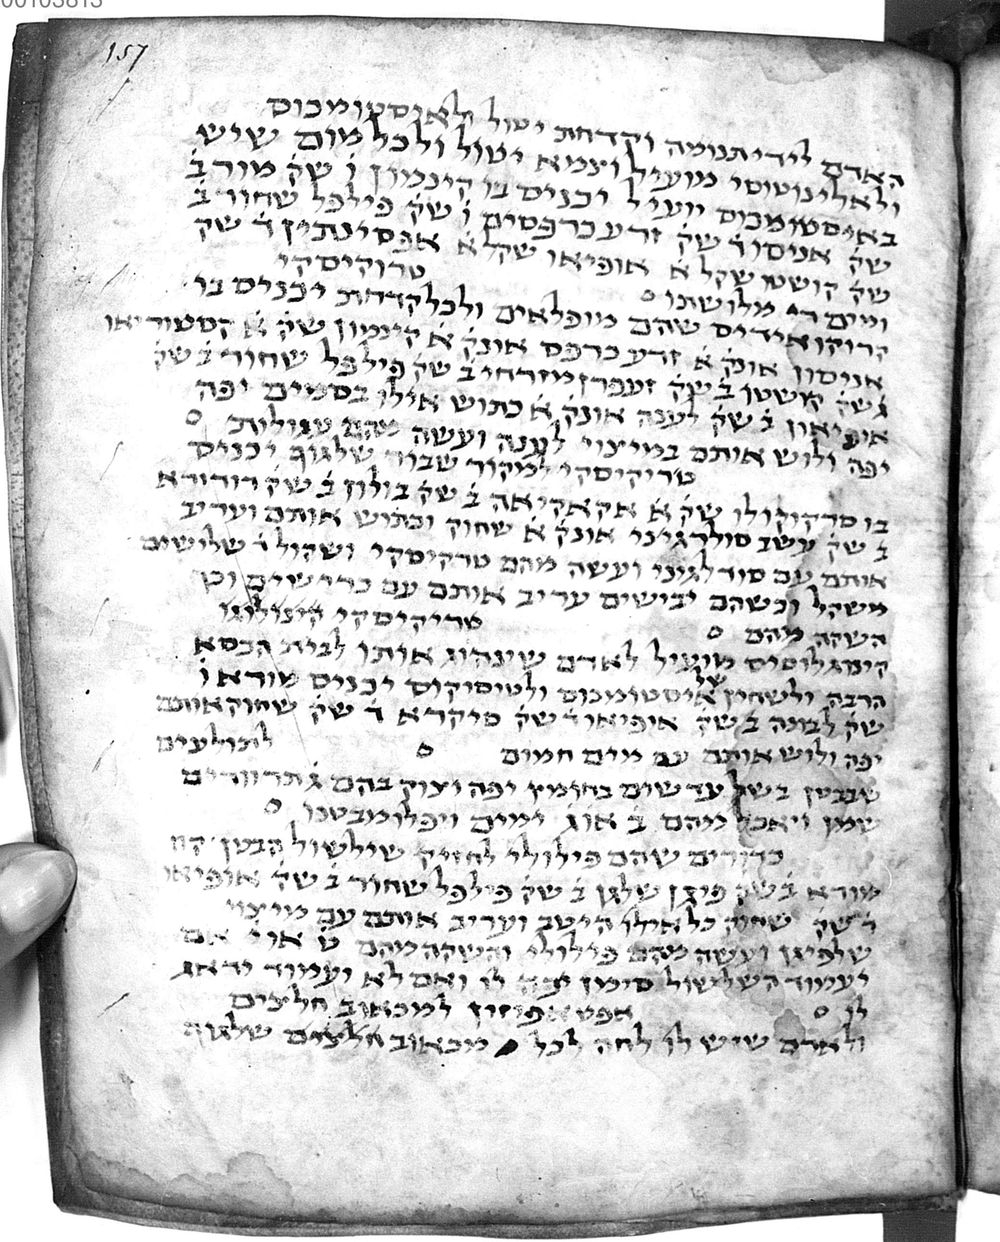 00103813
157
האדם לידי תנומה וקדחת יטול לאנסטומכוס
ולאלינוטוסי מועיל וצמא יטול ולכל מום שיש
באיסטומכוס יועיל יכניס בו קינמון ו שק מור ב
שק אניסון ד שק זרע כרפסים ו שק פילפל שחור ב
שק קושט שקל א אופיאו שקל א אפסינתין ד שק
ומים די מלושתו טרוקיסקי
קרוקואידיס שהם מופלאים ולכל קדחת יכניס בו
אניסון אונק א זרע כרפס אונק א קינמון שק א קסטוריאו
ג שק קושטן ב שק זעפרן מזרחי ב שק פילפל שחור ב שק
אופיאון ב שק לענה אונק א כתוש אילו בסמים יפה
יפה ולוש אותם במי צוי לענה ועשה מהם עגולות
טריקיסקי למקור שבות שלגוף יכניס
בו סרקוקולו שק א אקאקיאה ב שק בולון ב שק רודורא
ב שק עשב פולרגיני אונק א שחוק וכתוש אותם ועריב
אותם עם סודלגיני ועשה מהם טרקיסקי ושקול ד שלישים
משקל וכשהם יבישים עריב אותם עם כרישים וכך
השקה מהם טריקיסקי
מועיל לאדם שינהוג אותו לבית הכסא
הרבה ולשחין של איסטומכוס ולטיסיקוס יכניס מורא ו
שק לבונה ב שק אופיאו ד שק סיקרא ד שק שחוק אותם
יפה ולוש אותם עם מים חמום לתולעים
שבבטן בשל עדשים בחומץ יפה וצוק בהם ג תרוודים
שמן ויאכל מהם ב או ג ימים ויפלו מבטנו
כדורים שהם פילולי לחזיק שילשול הבטן קח
מורא ב שק פיגן שלגן ב שק פילפל שחור ב שק אופיאו
ד שק שחוק כל אילו היטב ועריב אותם עם מי צוי
שלפיגן ועשה מהם פילולי והשקה מהם ט או י אם
יעמוד השלשול סימן יפה לו ואם לא יעמוד ידאג
לו למכאוב חלצים
ולאדם שיש לו לחה לכל מכאוב חלצים שלגוף